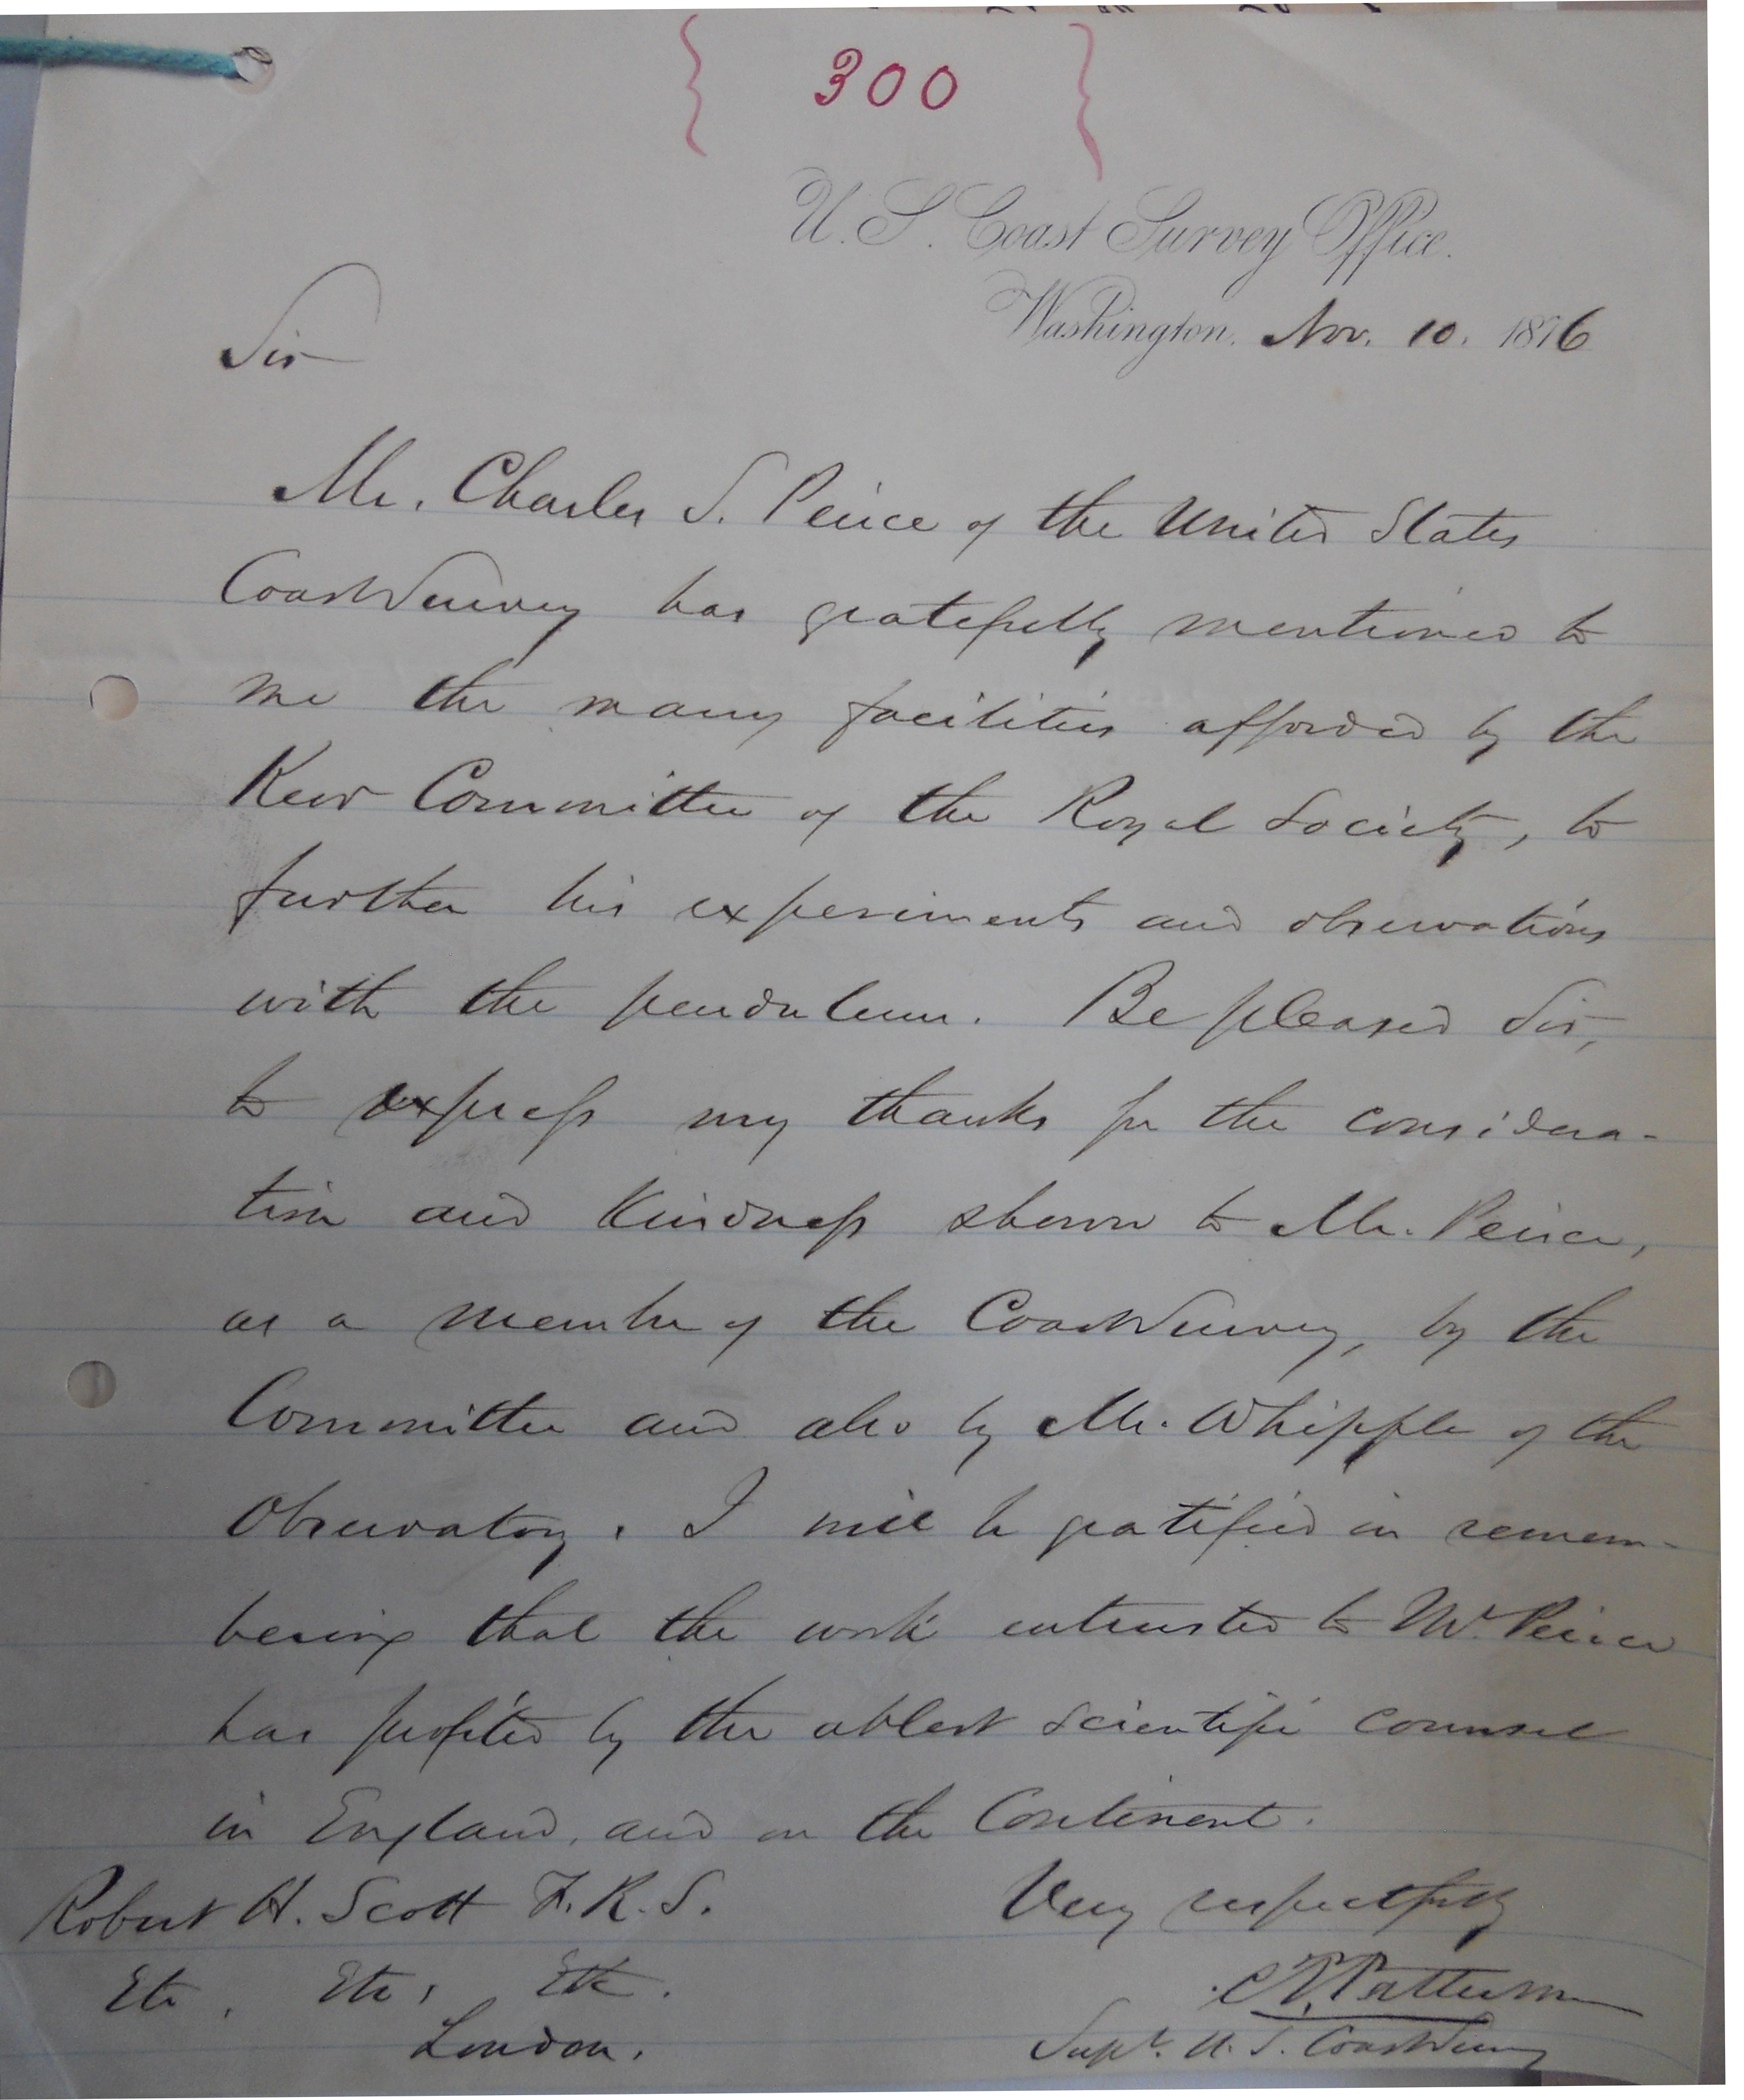 { 300 }
U. S. Coast Survey Office.
Washington, Nov. 10. 1876
Sir
Mr. Charles S. Peirce of the United States
Coast Survey has gratefully mentioned to
me the many facilities afforded by the
Kew Committee of the Royal Society, to
further his experiments and observations
with the pendulum. Be pleased Sir,
to express my thanks for the considera-
tion and kindness shown to Mr. Peirce,
as a member of the Coast Survey, by the
Committee and also by Mr. Whipple of the
Observatory. I will be gratified in remem-
bering that the work entrusted to Mr. Peirce
has profited by the ablest scientific counsel
in England, and on the Continent.
Robert H. Scott F.R.S.
Very respectfully
Etc, Etc, Etc.
C. P. Patterson
London.
Supt. U. S. Coast Survey